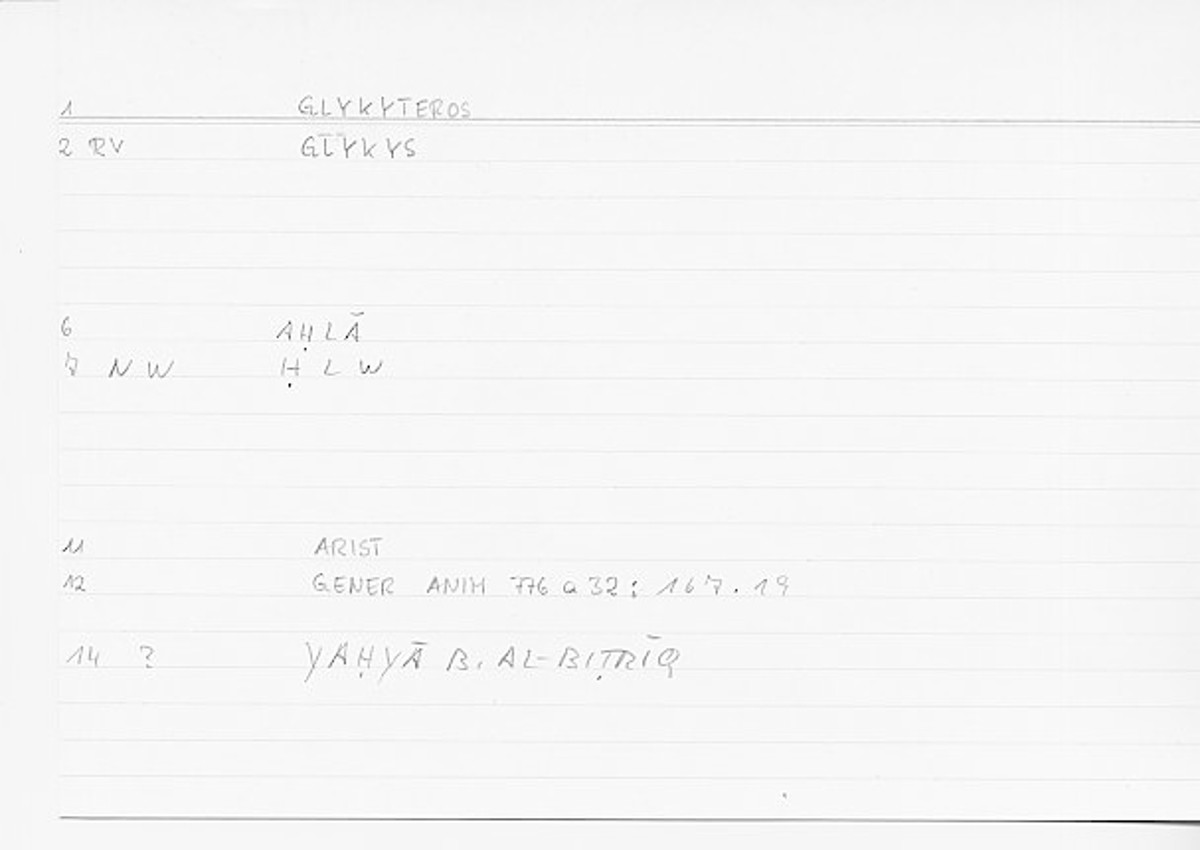 1 GLYKYTEROS
2 RV GLYKYS
6 AḤLĀ
7 NW Ḥ L W
11 ARIST
12 GENER ANIM 776 a 32 : 167.19
14 ? YAḤYĀ B. AL-BIṬRĪQ